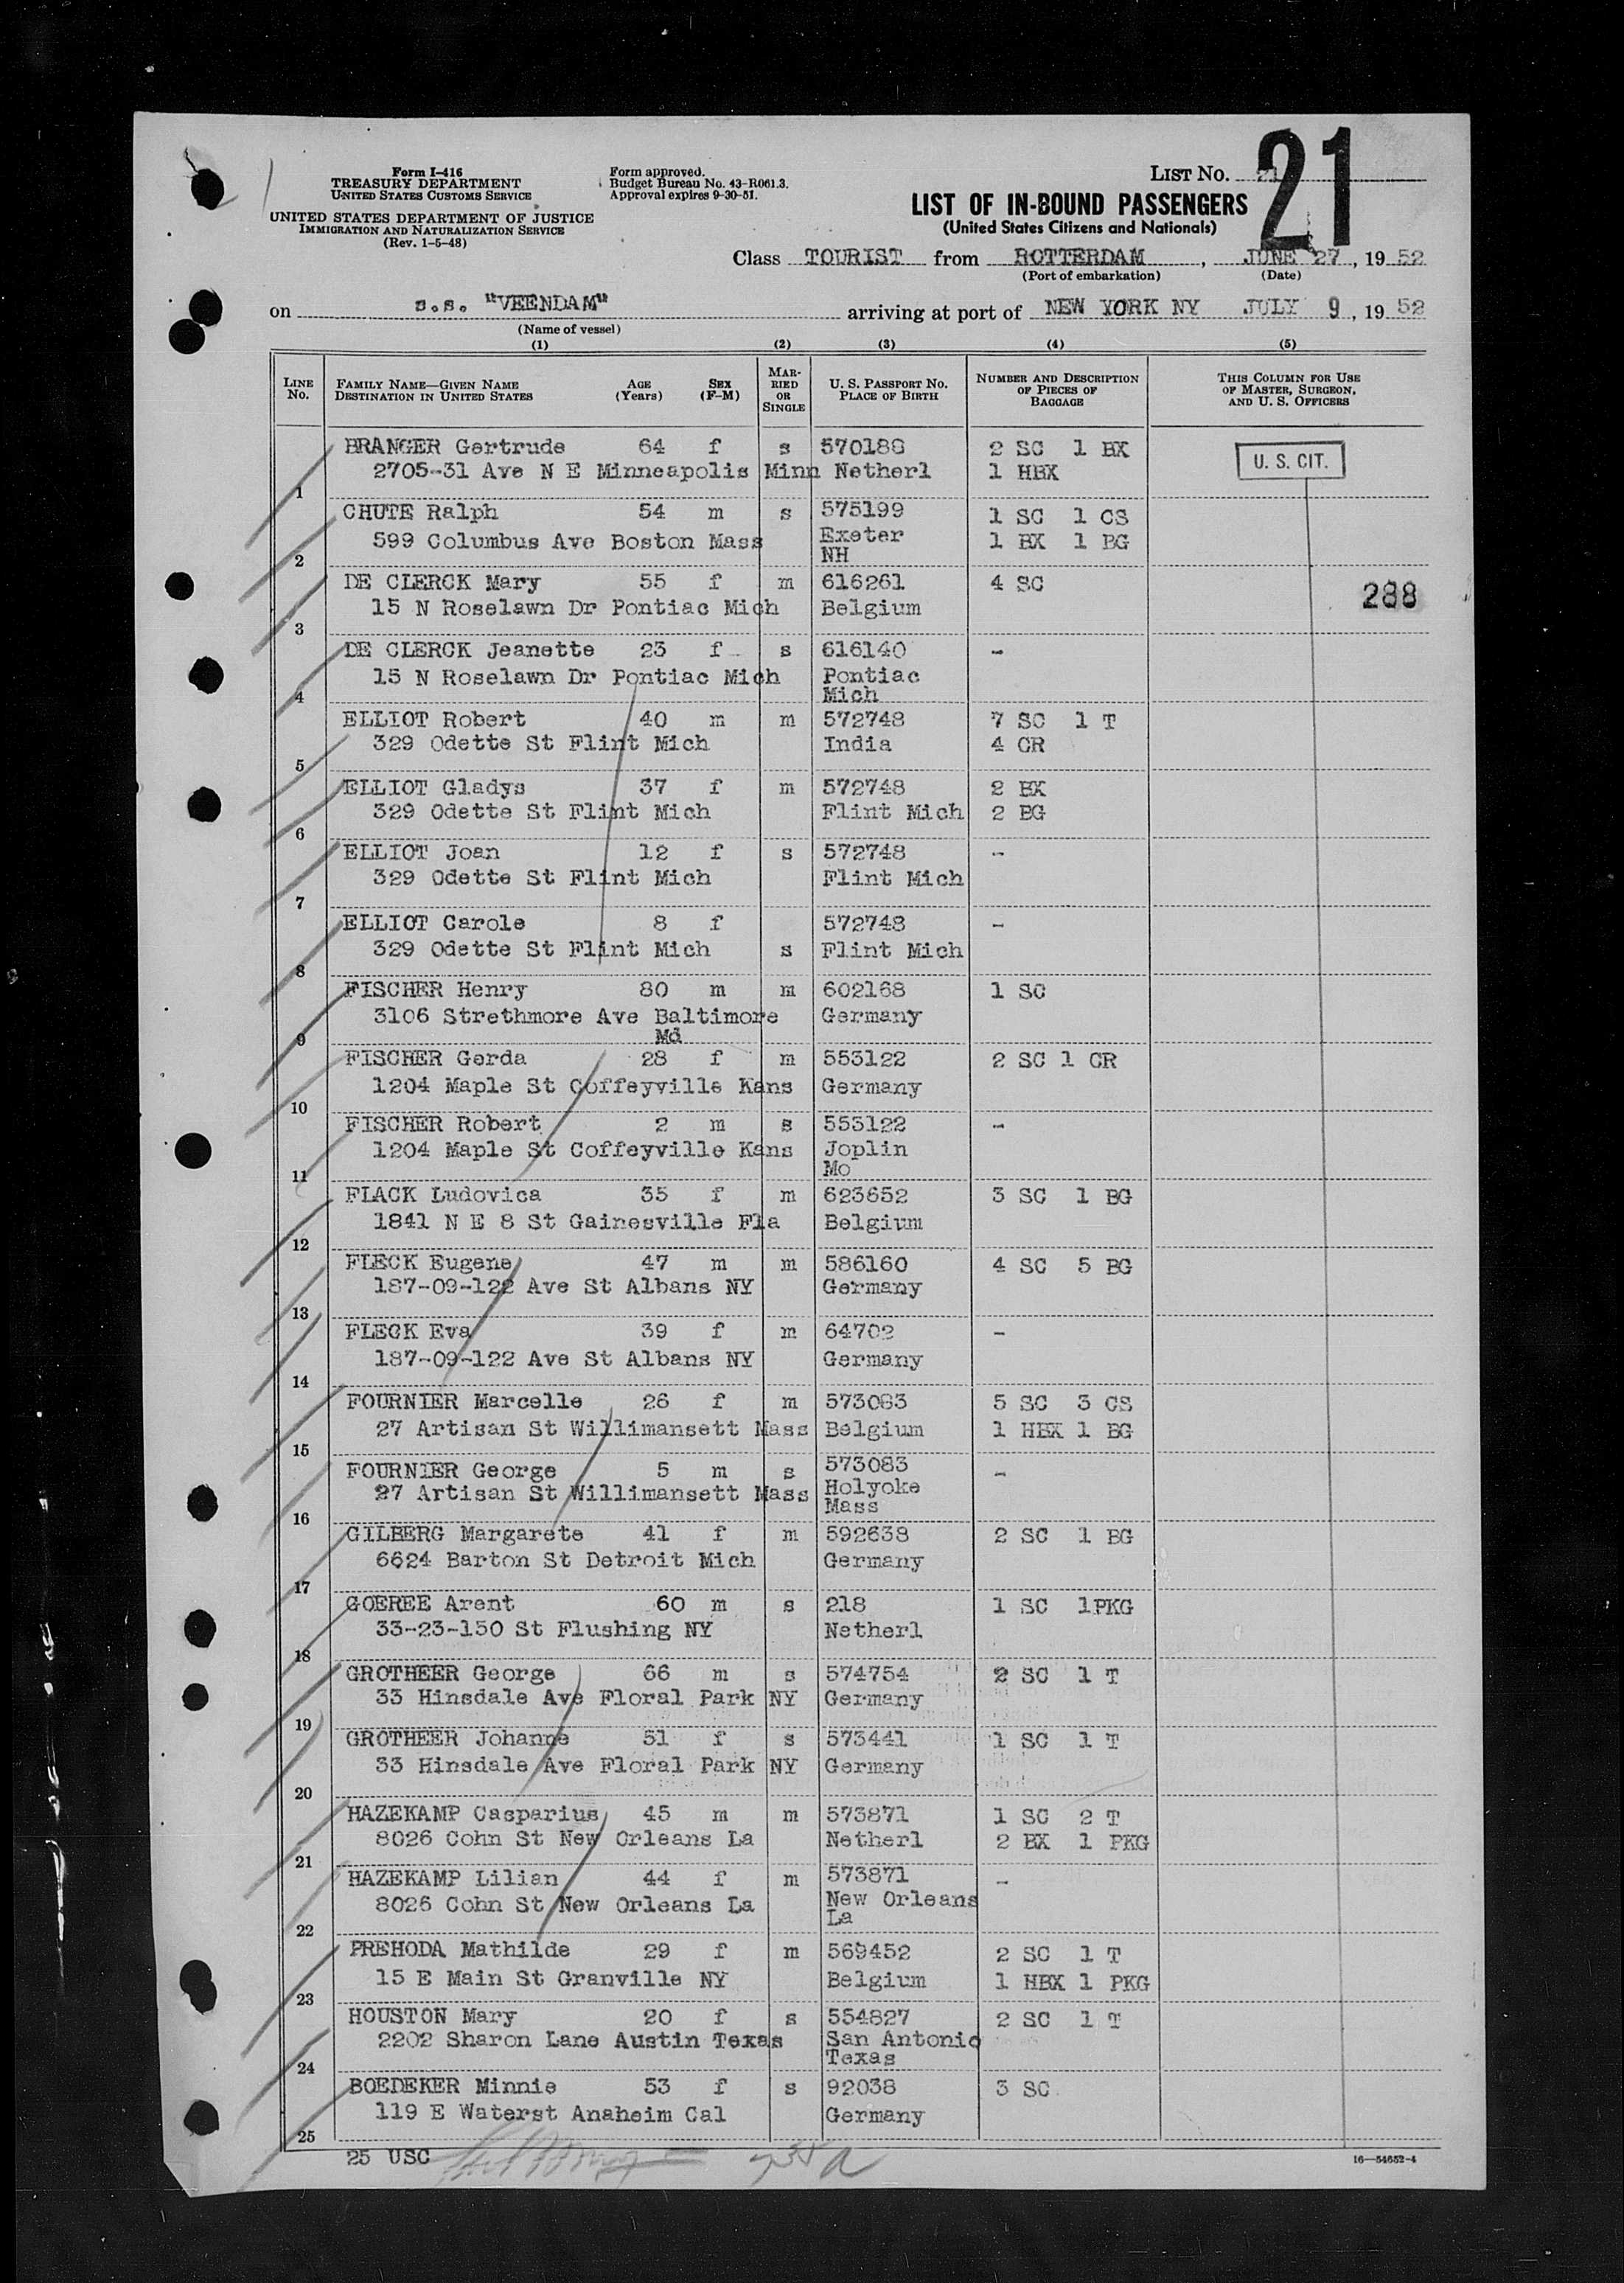 Form I-416
TREASURY DEPARTMENT
UNITED STATES CUSTOMS SERVICE
UNITED STATES DEPARTMENT OF JUSTICE
IMMIGRATION AND NATURALIZATION SERVICE
(Rev. 1-5-48)
Form approved.
Budget Bureau No. 43-R061.3.
Approval expires 9-30-51.
LIST NO. 21
21
LIST OF IN-BOUND PASSENGERS
(United States Citizens and Nationals)
Class TOURIST from ROTTERDAM, JUNE 27, 1952
(Port of embarkation) (Date)
on s.s. "VEENDAM" arriving at port of NEW YORK NY JULY 9, 1952
(Name of vessel)
(1) (2) (3) (4) (5)
LINE No. FAMILY NAME—GIVEN NAME DESTINATION IN UNITED STATES AGE (Years) SEX (F-M) MARRIED OR SINGLE U. S. PASSPORT NO. PLACE OF BIRTH NUMBER AND DESCRIPTION OF PIECES OF BAGGAGE THIS COLUMN FOR USE OF MASTER, SURGEON, AND U. S. OFFICERS
BRANGER Gertrude 64 f s 570188 2 SC 1 BX U. S. CIT.
2705-31 Ave N E Minneapolis Minn Netherl 1 HBX
1
CHUTE Ralph 54 m s 575199 1 SC 1 CS
599 Columbus Ave Boston Mass Exeter 1 BX 1 BG
NH
2
DE CLERCK Mary 55 f m 616261 4 SC 288
15 N Roselawn Dr Pontiac Mich Belgium
3
DE CLERCK Jeanette 23 f s 616140 -
15 N Roselawn Dr Pontiac Mich Pontiac
Mich
4
ELLIOT Robert 40 m m 572748 7 SC 1 T
329 Odette St Flint Mich India 4 CR
5
ELLIOT Gladys 37 f m 572748 2 BX
329 Odette St Flint Mich Flint Mich 2 BG
6
ELLIOT Joan 12 f s 572748 -
329 Odette St Flint Mich Flint Mich
7
ELLIOT Carole 8 f 572748 -
329 Odette St Flint Mich s Flint Mich
8
FISCHER Henry 80 m m 602168 1 SC
3106 Strethmore Ave Baltimore Germany
Md
9
FISCHER Gerda 28 f m 553122 2 SC 1 CR
1204 Maple St Coffeyville Kans Germany
10
FISCHER Robert 2 m s 553122 -
1204 Maple St Coffeyville Kans Joplin
Mo
11
FLACK Ludovica 35 f m 623652 3 SC 1 BG
1841 N E 8 St Gainesville Fla Belgium
12
FLECK Eugene 47 m m 586160 4 SC 5 BG
187-09-122 Ave St Albans NY Germany
13
FLECK Eva 39 f m 64702 -
187-09-122 Ave St Albans NY Germany
14
FOURNIER Marcelle 26 f m 573083 5 SC 3 CS
27 Artisan St Willimansett Mass Belgium 1 HBX 1 BG
15
FOURNIER George 5 m s 573083 -
27 Artisan St Willimansett Mass Holyoke
Mass
16
GILBERG Margarete 41 f m 592638 2 SC 1 BG
6624 Barton St Detroit Mich Germany
17
GOEREE Arent 60 m s 218 1 SC 1PKG
33-23-150 St Flushing NY Netherl
18
GROTHEER George 66 m s 574754 2 SC 1 T
33 Hinsdale Ave Floral Park NY Germany
19
GROTHEER Johanne 51 f s 573441 1 SC 1 T
33 Hinsdale Ave Floral Park NY Germany
20
HAZEKAMP Casparius 45 m m 573871 1 SC 2 T
8026 Cohn St New Orleans La Netherl 2 BX 1 PKG
21
HAZEKAMP Lilian 44 f m 573871 -
8026 Cohn St New Orleans La New Orleans
La
22
PREHODA Mathilde 29 f m 569452 2 SC 1 T
15 E Main St Granville NY Belgium 1 HBX 1 PKG
23
HOUSTON Mary 20 f s 554827 2 SC 1 T
2202 Sharon Lane Austin Texas San Antonio
Texas
24
BOEDEKER Minnie 53 f s 92038 3 SC
119 E Waterst Anaheim Cal Germany
25
25 USC
16—54652-4